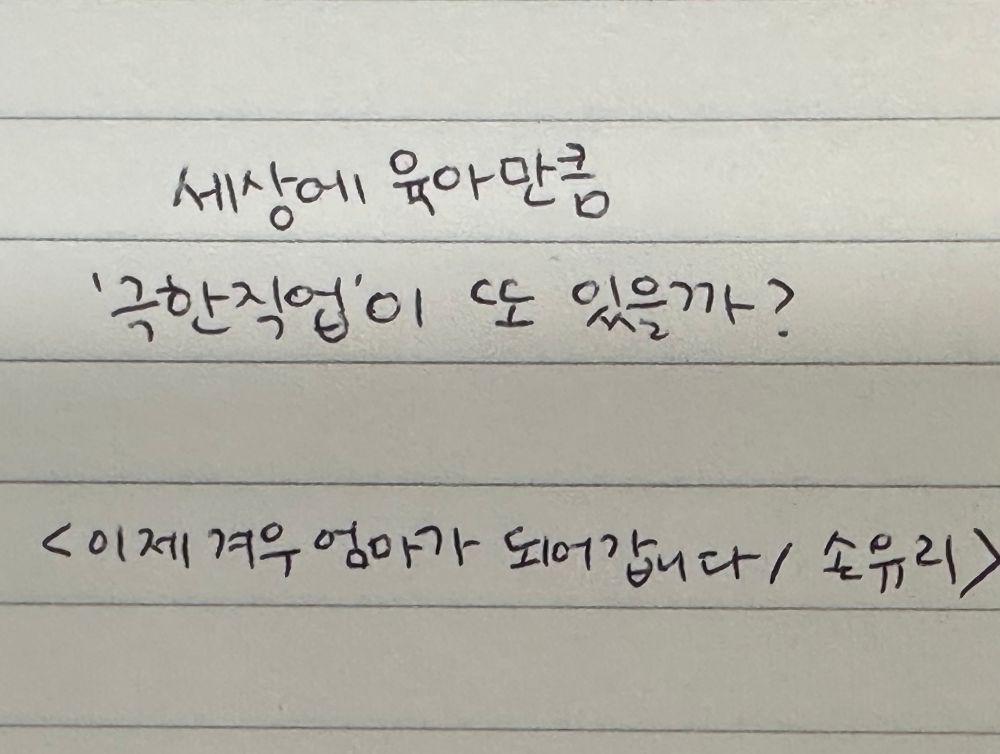 세상에 육아만큼
'극한직업'이 또 있을까?
<이제 겨우 엄마가 되어갑니다 / 손유리>